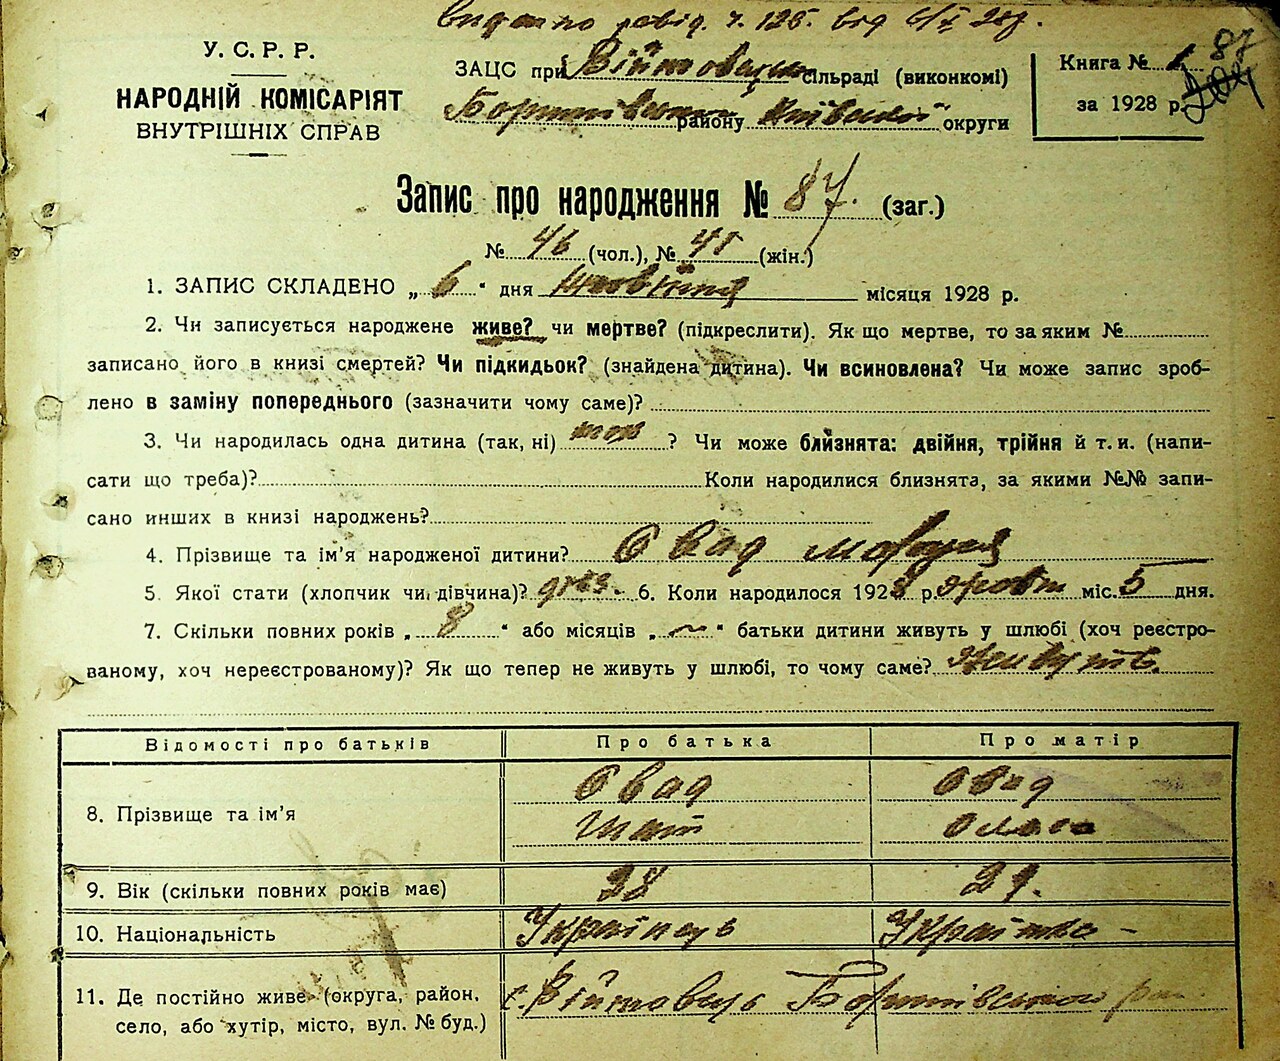 видано повід. ч. 125. від 6/X 28р.
У. С. Р. Р.
НАРОДНІЙ КОМІСАРІЯТ
ВНУТРІШНІХ СПРАВ
ЗАЦС при Війтовецькій сільраді (виконкомі)
Бориспівського району Київської округи
Книга № 1
за 1928 р.
87
Запис про народження № 87. (заг.)
№ 46 (чол.), № 41 (жін.)
1. ЗАПИС СКЛАДЕНО „ 6 " дня Жовтня місяця 1928 р.
2. Чи записується народжене живе? чи мертве? (підкреслити). Як що мертве, то за яким №
записано його в книзі смертей? Чи підкидьок? (знайдена дитина). Чи всиновлена? Чи може запис зроб-
лено в заміну попереднього (зазначити чому саме)?
3. Чи народилась одна дитина (так, ні) ? Чи може близнята: двійня, трійня й т. и. (напи-
сати що треба)? Коли народилися близнята, за якими №№ запи-
сано инших в книзі народжень?
4. Прізвище та ім'я народженої дитини? Овад Маруся
5. Якої стати (хлопчик чи дівчина)? дівч. 6. Коли народилося 1928 р. жовт міс. 5 дня.
7. Скільки повних років „ 8 " або місяців „ ~ " батьки дитини живуть у шлюбі (хоч реєстро-
ваному, хоч нереєстрованому)? Як що тепер не живуть у шлюбі, то чому саме? Живуть.
Відомості про батьків Про батька Про матір
8. Прізвище та ім'я Овад Овад
Гнат Олена
9. Вік (скільки повних років має) 28 29.
10. Національність Українець Українка -
11. Де постійно живе (округа, район, с. Війтовець Бориспівського рай.
село, або хутір, місто, вул. № буд.)